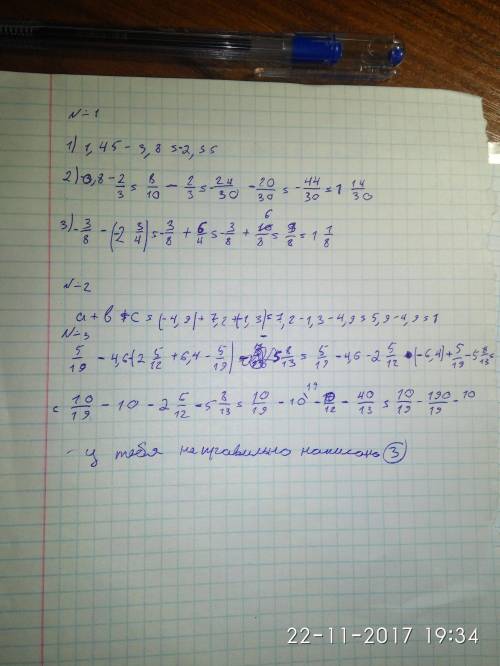 N=1
1) 1,45 - 3,8 = -2,35
2) -0,8 - 2/3 = 8/10 - 2/3 = -24/30 - 20/30 = -44/30 = 1 14/30
3) -3/8 - (-2 3/4) = -3/8 + 6/4 = -3/8 + 6/8 = 9/8 = 1 1/8
N=2
a + b + c = (-4,9) + 7,2 + (-1,3) = 7,2 - 1,3 - 4,9 = 5,9 - 4,9 = 1
N=3
5/19 - 4,6 (2 5/12 + 6,4 - 5/19) - 5 8/13 = 5/19 - 4,6 - 2 5/12 - (-6,4) + 5/19 - 5 8/13 =
= 10/19 - 10 - 2 5/12 - 5 8/13 = 10/19 - 10 - /12 - 40/13 = 10/19 - 190/19 - 10
- у тебя неправильно написано 3
22-11-2017 19:34